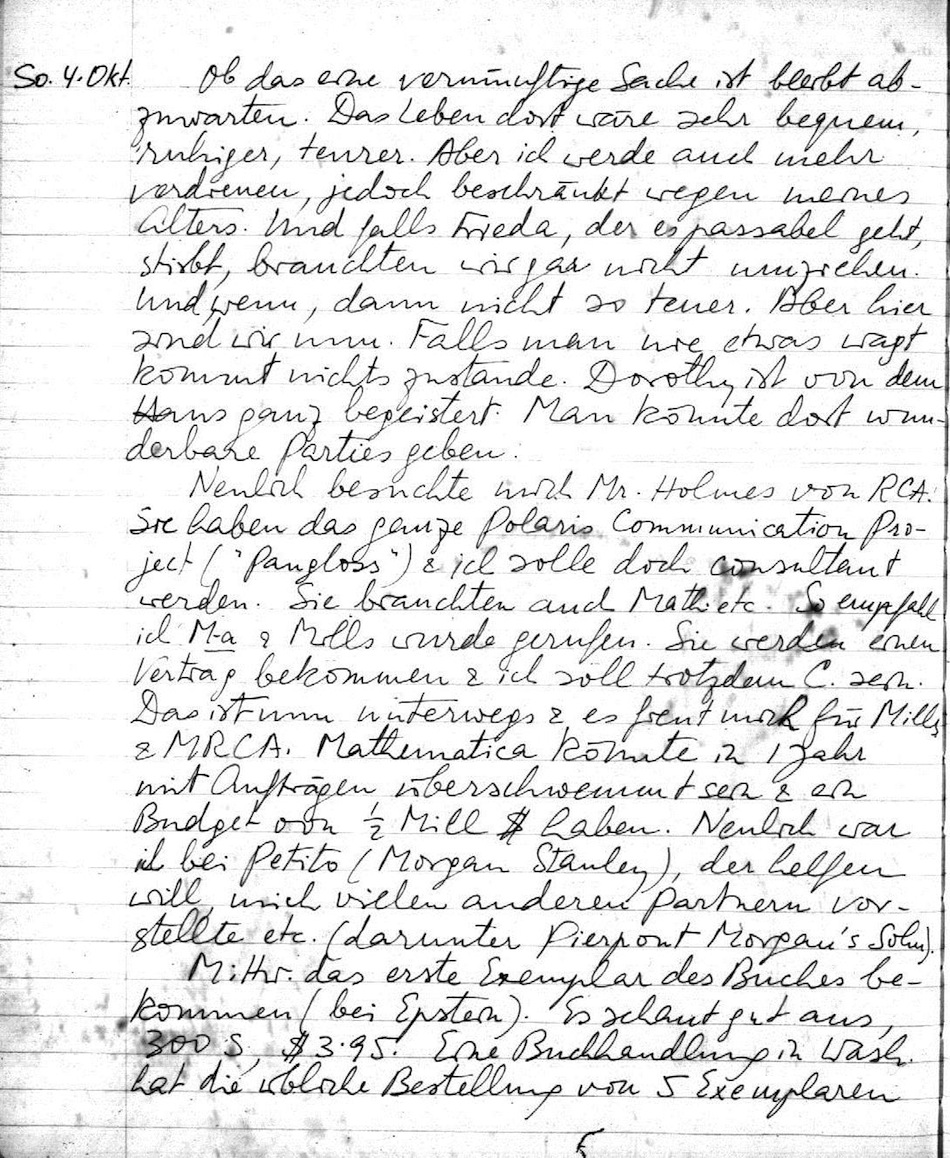 So. 4. Okt. Ob das eine vernünftige Sache ist bleibt ab-
zuwarten. Das Leben dort wäre sehr bequem,
ruhiger, teurer. Aber ich werde auch mehr
verdienen, jedoch beschränkt wegen meines
Alters. Und falls Frieda, der es passabel geht,
stirbt, brauchten wir gar nicht umziehen.
Und wenn, dann nicht so teuer. Aber hier
sind wir nun. Falls man nie etwas wagt
kommt nichts zustande. Dorothy ist von dem
Haus ganz begeistert. Man könnte dort wun-
derbare Parties geben.
Neulich besuchte mich Mr. Holmes von RCA.
Sie haben das ganze Polaris Communication Pro-
ject ("Pangloss") & ich solle doch consultant
werden. Sie brauchten auch Math etc. So empfahl
ich M-a & Mills wurde gerufen. Sie werden einen
Vertrag bekommen & ich soll trotzdem C. sein.
Das ist nun unterwegs & es freut mich für Mills
& MRCA. Mathematica könnte in 1 Jahr
mit Aufträgen überschwemmt sein & ein
Budget von ½ Mill $ haben. Neulich war
ich bei Petito (Morgan Stanley), der helfen
will, mich vielen anderen Partnern vor-
stellte etc. (darunter Pierpont Morgan's Sohn).
Mittw. das erste Exemplar des Buches be-
kommen (bei Epstein). Es schaut gut aus,
300 S, $3.95. Eine Buchhandlung in Wash.
hat die übliche Bestellung von 5 Exemplaren